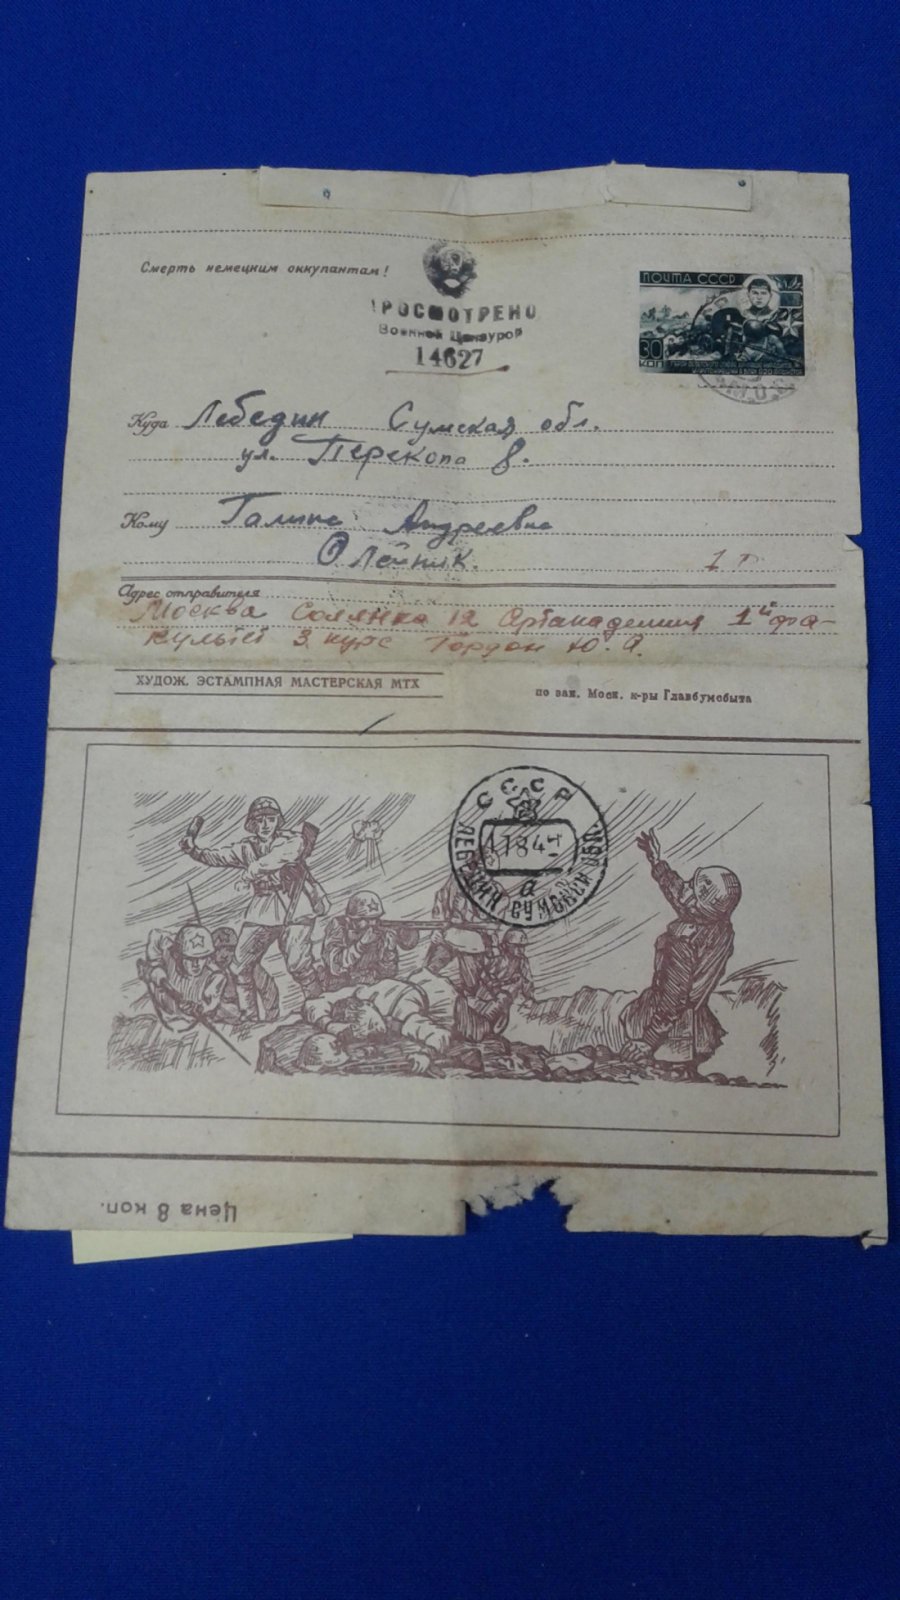 Смерть немецким оккупантам!
ПРОСМОТРЕНО
Военной Цензурой
14627
ПОЧТА СССР
30
КОП
Куда Лебедин Сумская обл.
ул. Перекопа 8.
Кому Галине Андреевне
Олейник.
Адрес отправителя
Москва Солянка 12 Артакадемия 1й фа-
культет 3 курс Гордон Ю. А.
ХУДОЖ. ЭСТАМПНАЯ МАСТЕРСКАЯ МТХ
по зак. Моск. к-ры Главбумсбыта
СССР
17844
а
ЛЕБЕДИН СУМСКОЙ ОБЛ.
Цена 8 коп.